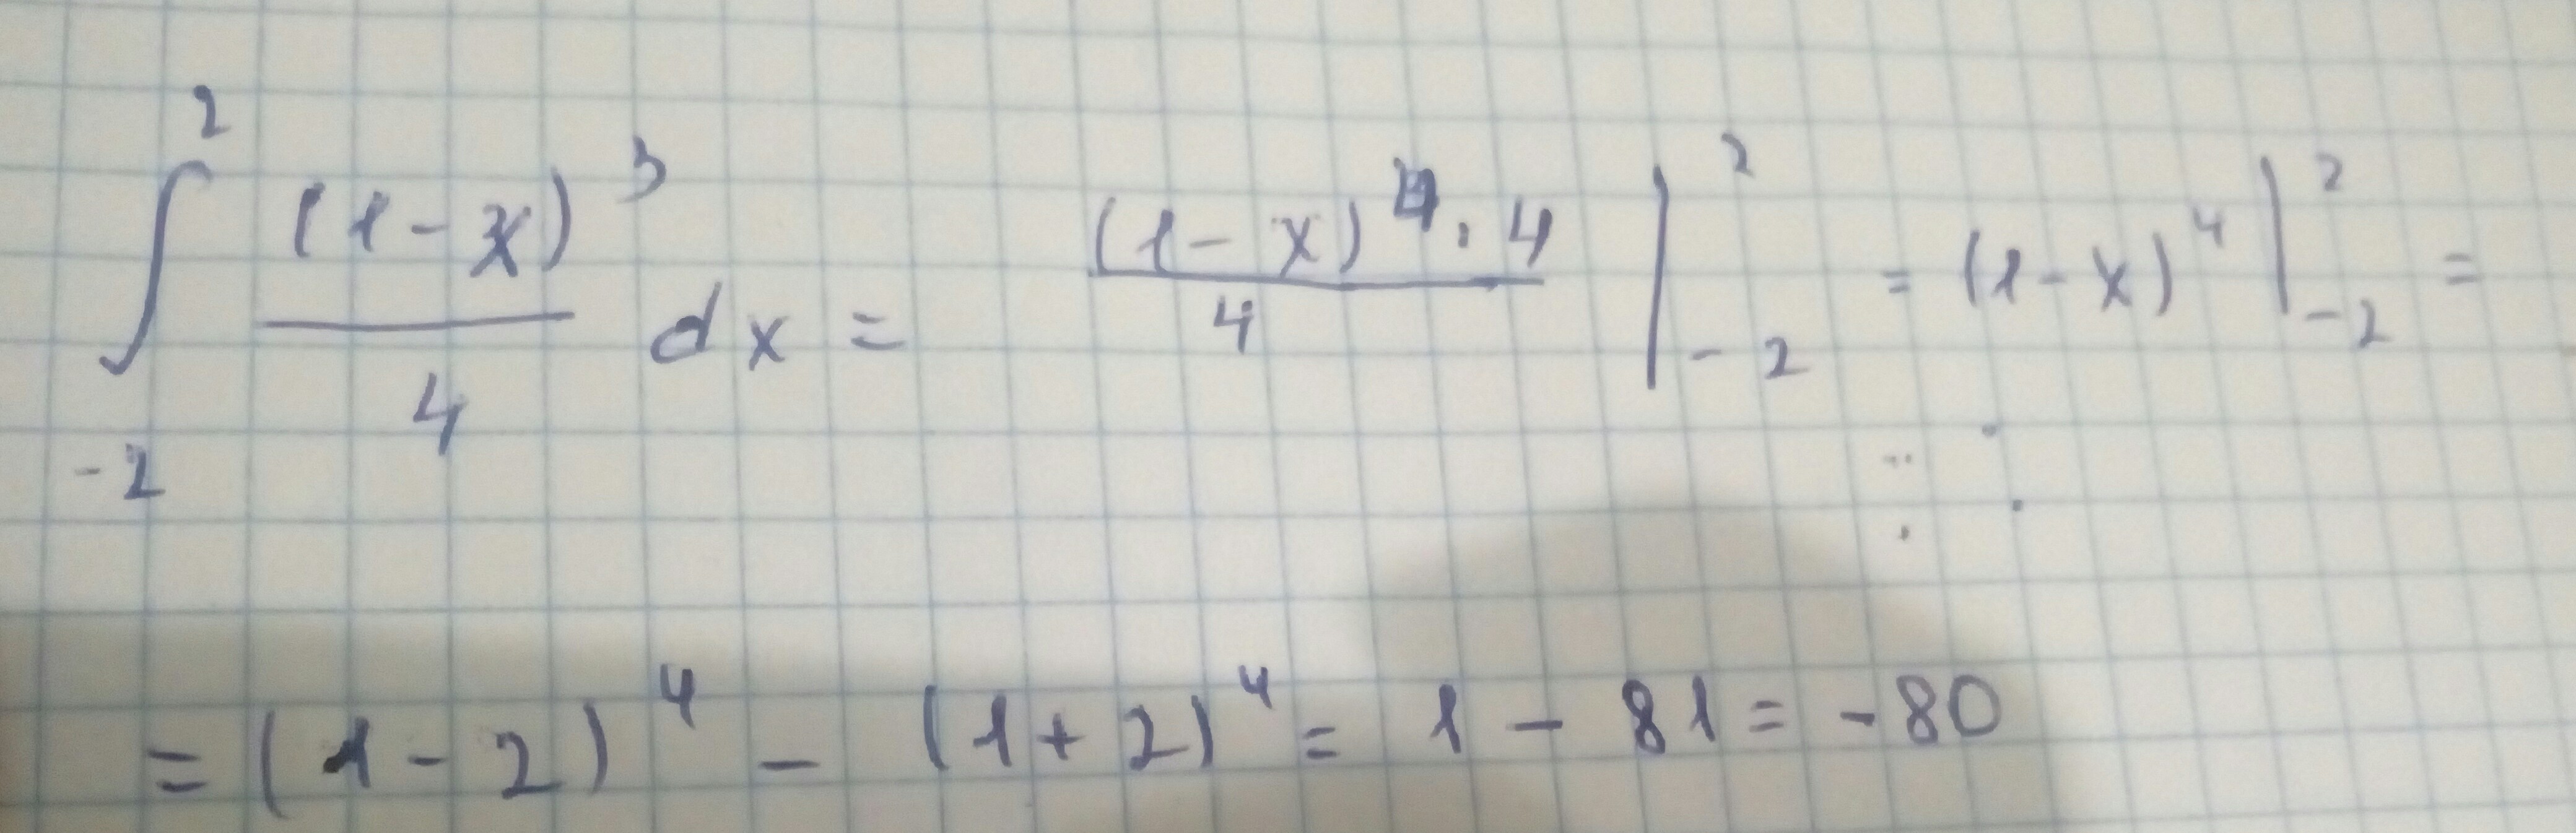 ∫_{-2}^{2} (1-x)^3/4 dx = (1-x)^4·4/4 |_{-2}^{2} = (1-x)^4 |_{-2}^{2} =
= (1-2)^4 - (1+2)^4 = 1 - 81 = -80